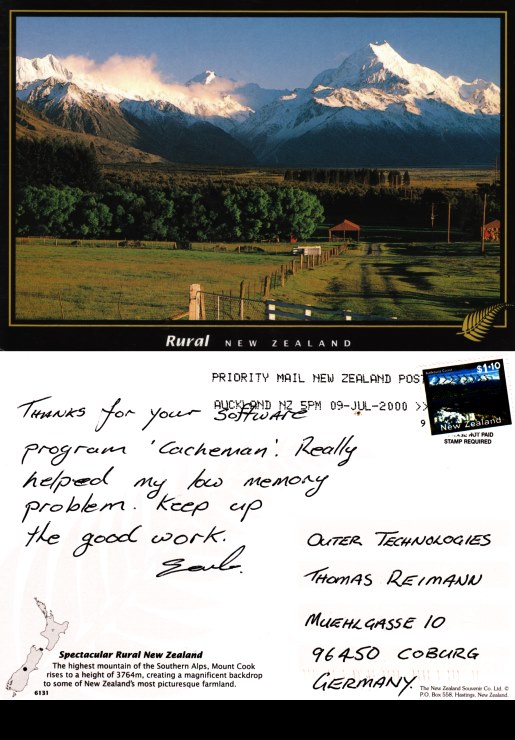 Rural NEW ZEALAND
PRIORITY MAIL NEW ZEALAND POST
AUCKLAND NZ 5PM 09-JUL-2000 >>
9
$1.10
New Zealand
NOT PAID
STAMP REQUIRED
THANKS for your SOFTWARE
program 'Cacheman'. Really
helped my low memory
problem. Keep up
the good work.
OUTER TECHNOLOGIES
THOMAS REIMANN
MUEHLGASSE 10
96450 COBURG
GERMANY.
Spectacular Rural New Zealand
The highest mountain of the Southern Alps, Mount Cook
rises to a height of 3764m, creating a magnificent backdrop
to some of New Zealand's most picturesque farmland.
6131
The New Zealand Souvenir Co. Ltd. ©
P.O. Box 558, Hastings, New Zealand.